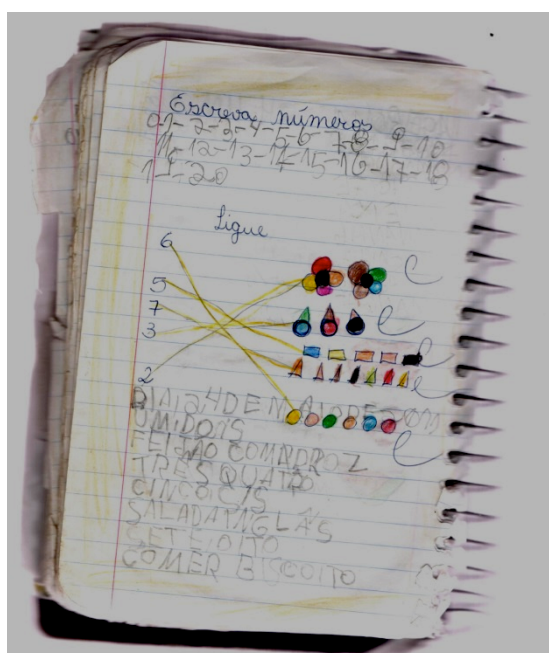 Escreva números
01-2-3-4-5-6-7-8-9-10
11-12-13-14-15-16-17-18
19-20
Ligue
6
5
7
3
2
UMIDOIS
FEIJÃO COMNDROZ
TRESQUATRO
CINCOCIS
SALADAINGLÁS
SETEIOITO
COMER BISCOITO